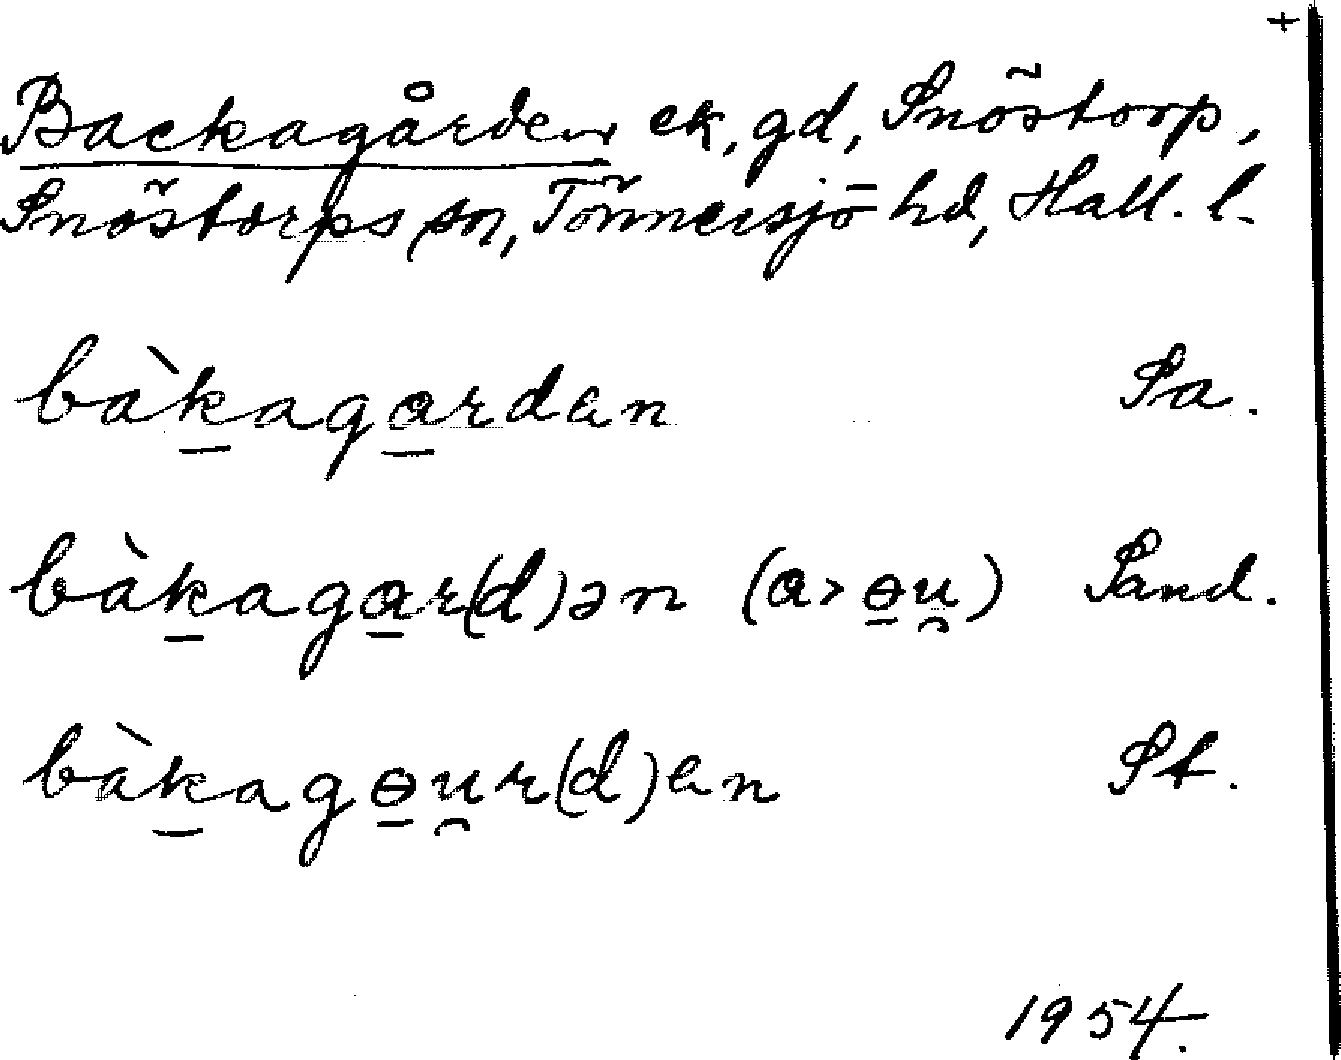 +
Backagården ek, gd, Snöstorp,
Snöstorps sn, Tönnersjö hd, Hall. l.
bàk̲aga̲rdan Sa.
bàk̲aga̲r(d)ən (a> ɵ̲u̯) Sand.
bàk̲agɵ̲u̯r(d)an St.
1954.